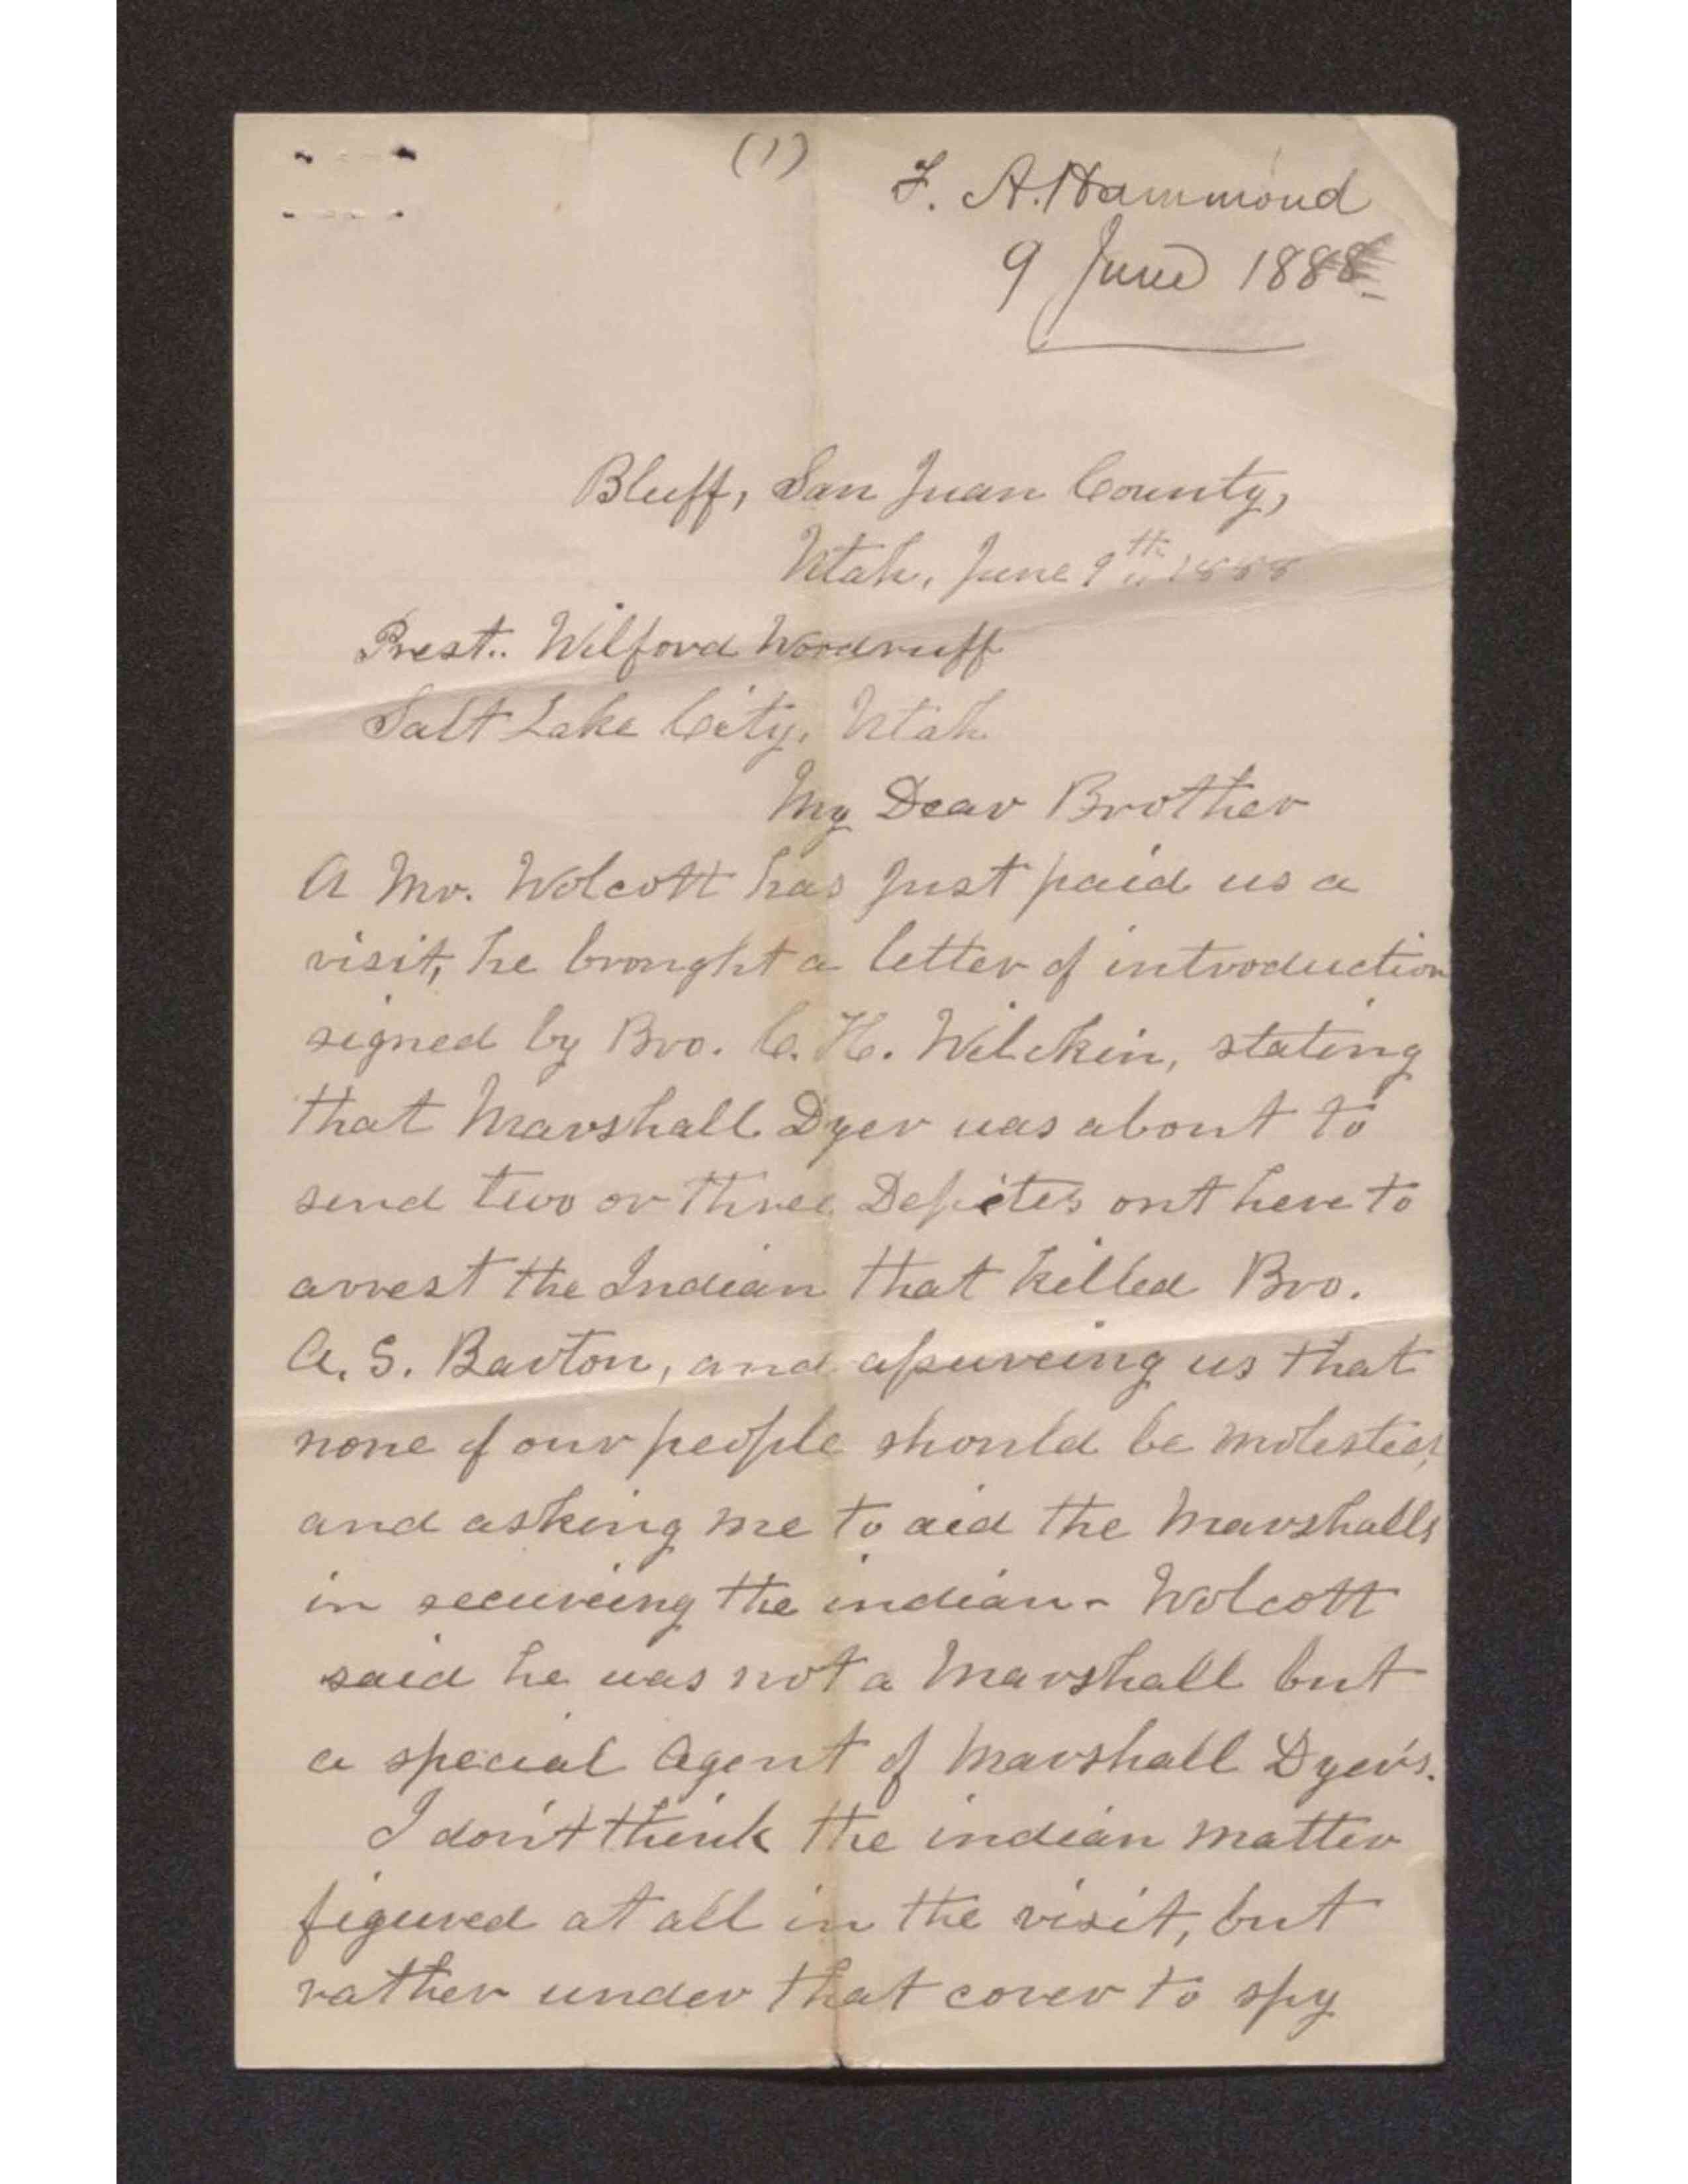 (1)
F. A. Hammond
9 June 1888
Bluff, San Juan County,
Utah, June 9th 1888
Prest.. Wilford Woodruff
Salt Lake City, Utah
My Dear Brother
A Mr. Wolcott has just paid us a
visit, he brought a letter of introduction
signed by Bro. C. H. Wilckin, stating
that Marshall Dyer was about to
send two or three Depetes out here to
arrest the Indian that killed Bro.
A. S. Barton, and assureing us that
none of our people should be molested,
and asking me to aid the Marshalls
in secureing the indian - Wolcott
said he was not a Marshall but
a special Agent of Marshall Dyer's.
I don't think the indian matter
figured at all in the visit, but
rather under that cover to spy